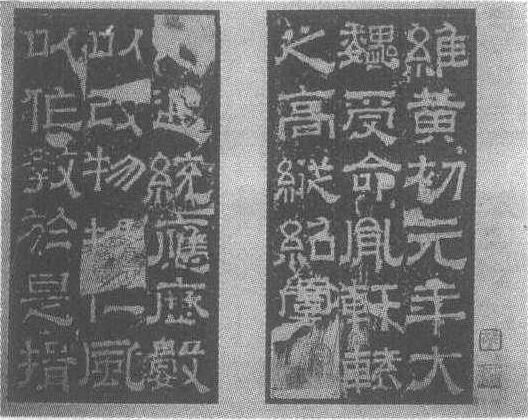 維黃初元年大
魏受命胤軒轅
之高縱紹虞
遐統應歷數
以改物揚仁風
以作教於是揖